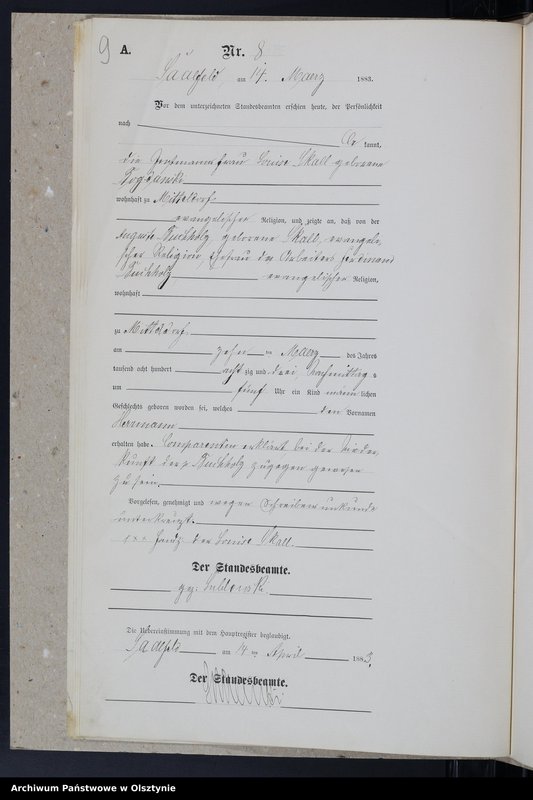 9
A.
Nr. 8
Saalfeld, am 14. Maerz 1883.
Vor dem unterzeichneten Standesbeamten erschien heute, der Persönlichkeit
nach
be kannt,
die frau Louise Skall geborene
wohnhaft zu Mitteldorf
evangelischer Religion, und zeigte an, daß von der
Auguste Buchholz, geborene Skall, evangeli-
scher Religion, Ehefrau des Arbeiters Ferdinand
Buchholz evangelischer Religion,
wohnhaft
zu Mitteldorf
am zehn ten Maerz des Jahres
tausend acht hundert acht zig und drei, Nachmittags
um fünf Uhr ein Kind männ lichen
Geschlechts geboren worden sei, welches den Vornamen
Herrmann
erhalten habe. Comparentin erklärt bei der Nieder-
kunft der Buchholz zugegen gewesen
zu sein.
Vorgelesen, genehmigt und wegen Schreibensunkunde
unterkreuzt.
xxx Hndz. der Louise Skall.
Der Standesbeamte.
gez:
Die Uebereinstimmung mit dem Hauptregister beglaubigt.
Saalfeld am 14 ten April 1883.
Der Standesbeamte.
Archiwum Państwowe w Olsztynie